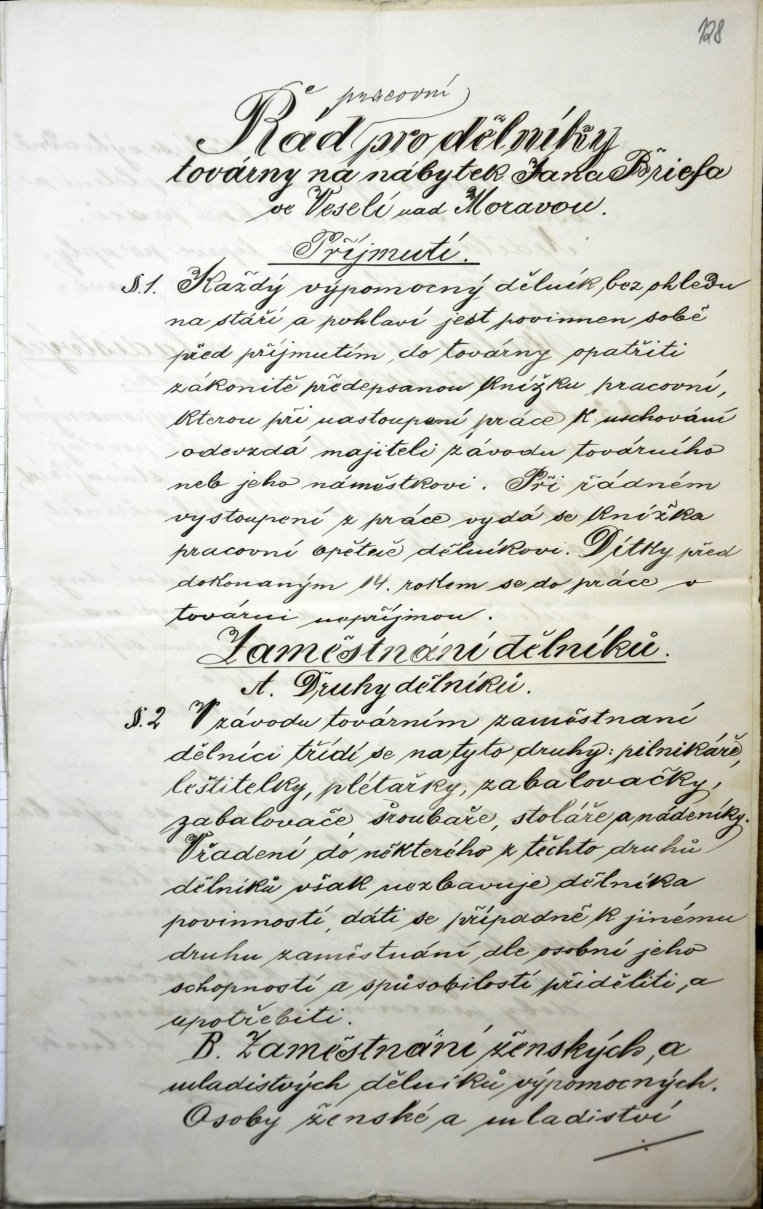 128
pracovní
Řád pro dělníky
továrny na nábytek Jana Břiefa
ve Veselí nad Moravou.
Příjmutí.
§.1. Každý výpomocný dělník, bez ohledu
na stáří a pohlaví jest povinnen sobě
před příjmutím do továrny opatřiti
zákonitě předepsanou knížku pracovní,
kterou při nastoupení práce k uschování
odevzdá majiteli závodu továrního
neb jeho náměstkovi. Při řádném
vystoupení z práce vydá se knížka
pracovní opětně dělníkovi. Dítky před
dokonaným 14. rokem se do práce v
továrni nepříjmou.
Zaměstnání dělníků.
A. Druhy dělníků.
§.2 V závodu továrním zaměstnaní
dělníci třídí se na tyto druhy: pilnikáře,
leštitelky, plétařky, zabalovačky,
zabalovače šroubaře, stoláře a nádeníky.
Vřadení do některého z těchto druhů
dělníků však nezbavuje dělníka
povinností, dáti se případně k jinému
druhu zaměstnání, dle osobní jeho
schopností a spůsobilostí přiděliti, a
upotřebiti.
B. Zaměstnání ženských, a
mladistvých dělníků výpomocných.
Osoby ženské a mladiství